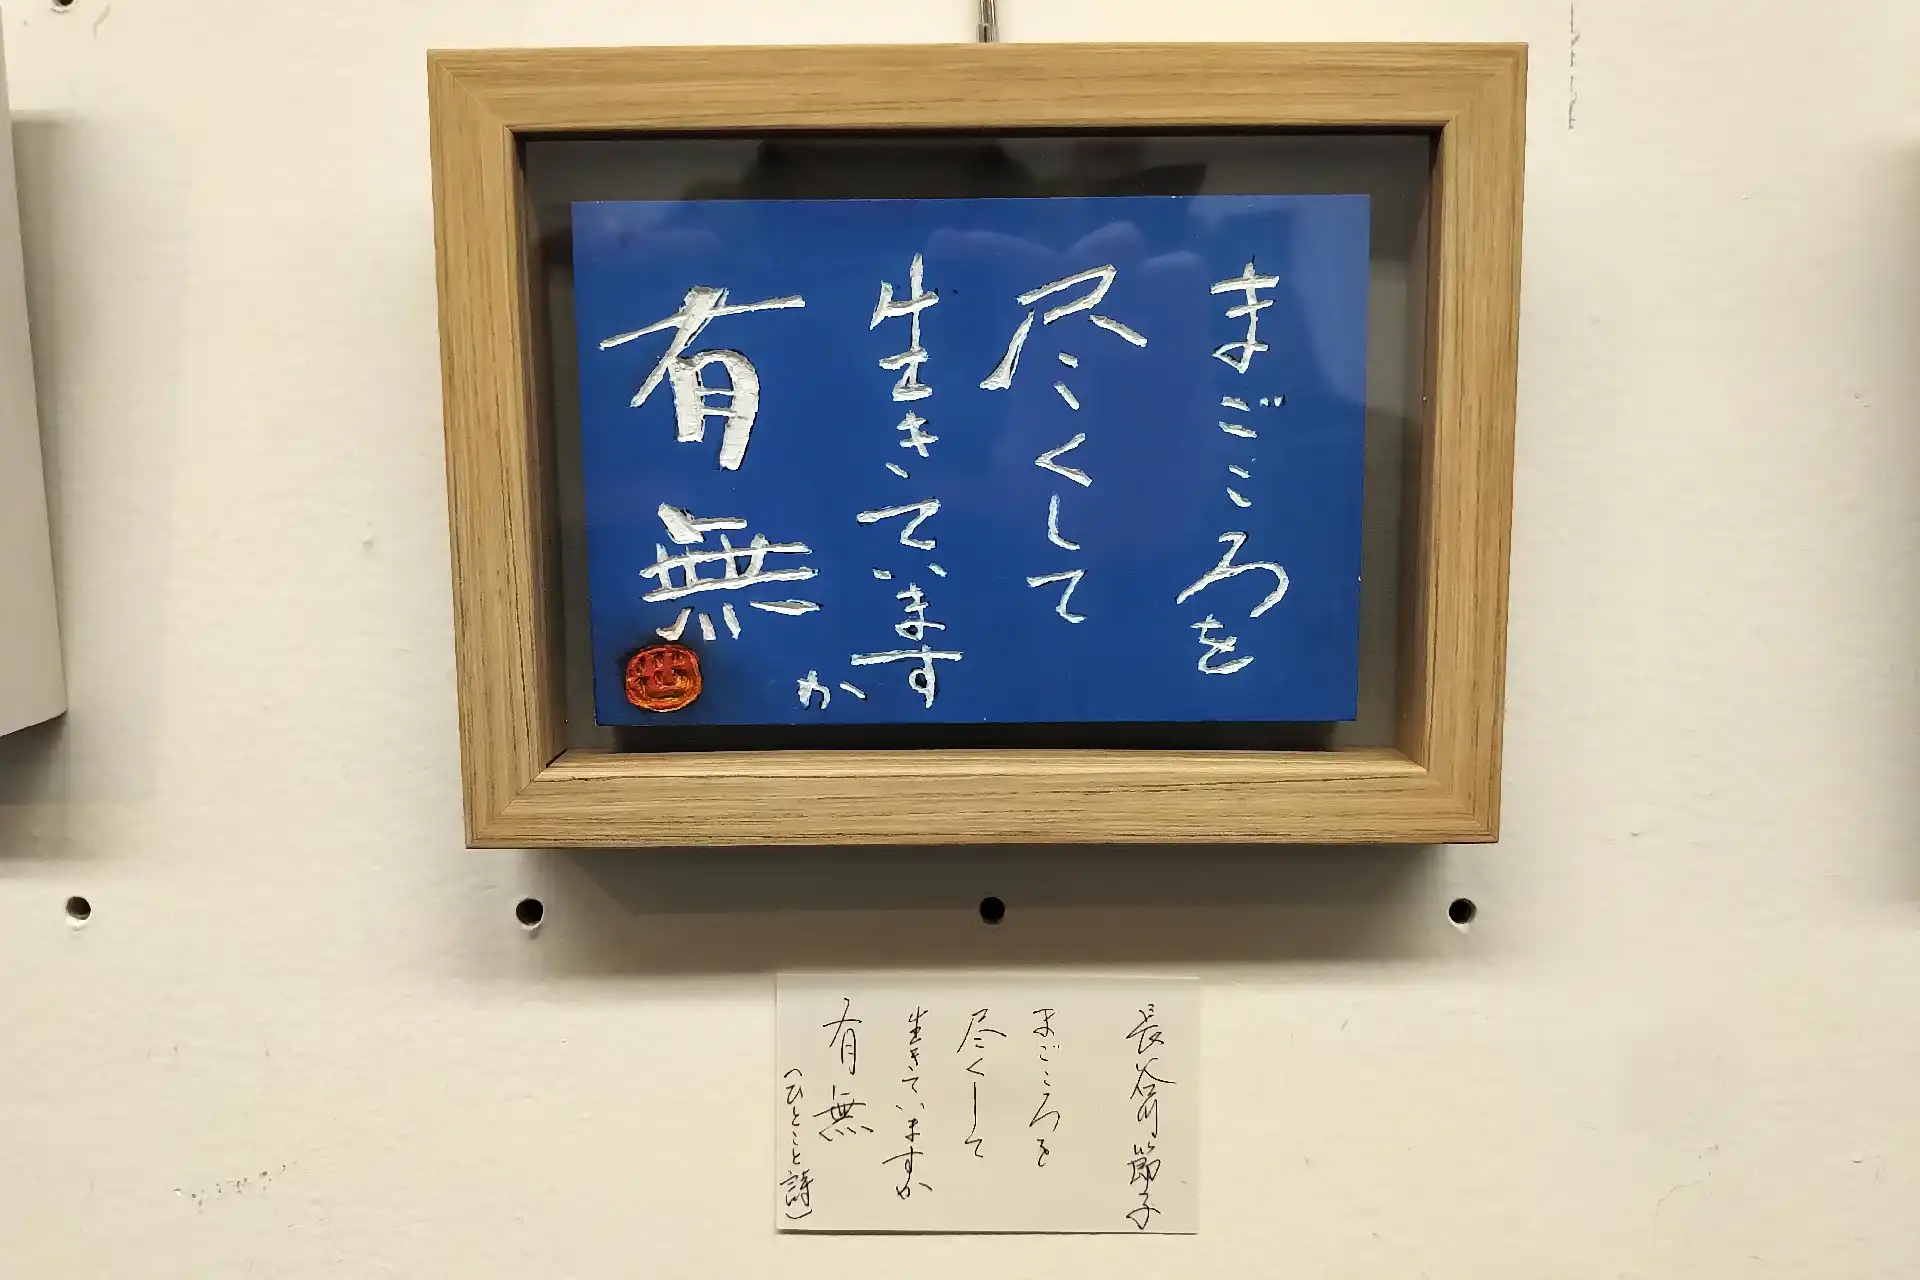 まごころを
尽くして
生きていますか
有無
長谷川節子
まごころを
尽くして
生きていますか
有無
(ひとこと詩)